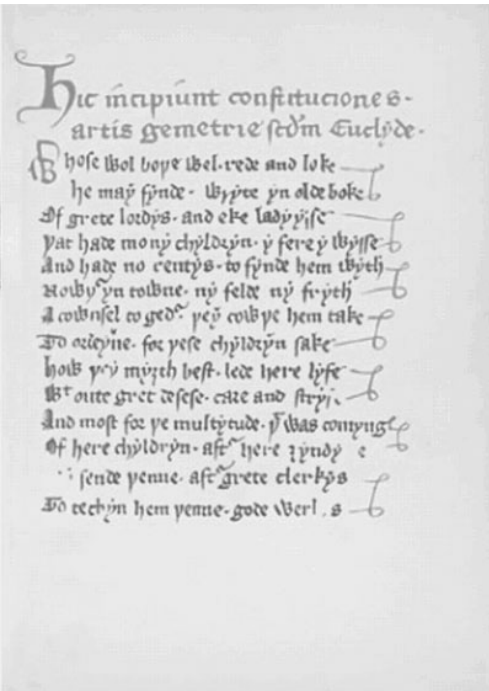 Hic incipiunt constituciones
artis gemetrie scdm Euclyde.
Whose wol boþe wel rede and loke
he may fynde wryte yn olde boke
Of grete lordys and eke ladyysse
þat hade mony chyldryn y fere y wysse
And hade no rentys to fynde hem wyth
Nowþ yn towne ny felde ny fryth
A cownsel to ged þey cowþe hem take
To ordeyne for þese chyldryn sake
how þey myȝth best lede here lyfe
Wt oute gret desese care and stryf
And most for þe multytude þt was comynge
Of here chyldryn aft here ȝyndy
sende þenne aft grete clerkys
To techyn hem þenne gode werk s